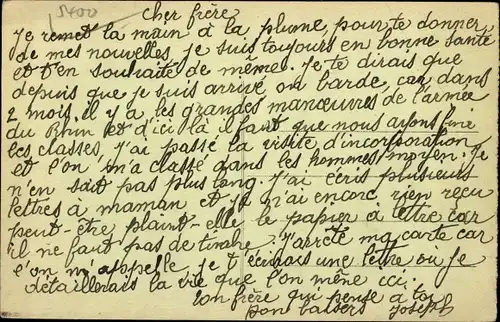 5400
Cher frère
Je remet la main à la plume pour te donner
de mes nouvelles, je suis toujours en bonne santé
et t'en souhaite de même. Je te dirais que
depuis que je suis arrivé on barde, car dans
2 mois il y a les grandes manœuvres de l'armée
du Rhin et d'ici là il faut que nous ayons finie
les classes, j'ai passé la visite d'incorporation
et l'on m'a classé dans les hommes moyen. Je
n'en sait pas plus long. J'ai écris plusieurs
lettres à maman et je n'ai encore rien recu
peut-être plaint-elle le papier à lettre car
il ne faut pas de timbre. J'arrête ma carte car
l'on m'appelle, je t'écrirais une lettre ou je
détaillerais la vie que l'on mène ici.
ton frère qui pense à toi
bon baisers Joseph